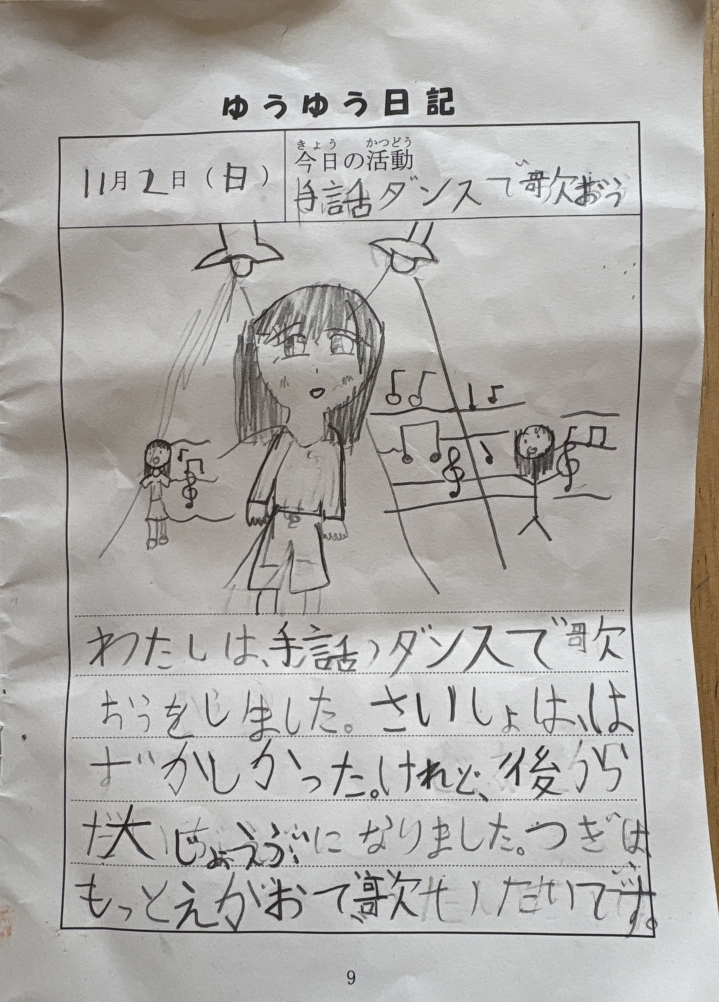 ゆうゆう日記
11月2日(日)
きょう かつどう
今日の活動
手話ダンスで歌おう
わたしは、手話ダンスで歌
おうをしました。さいしょは、は
ずかしかった。けれど、後から
大じょうぶになりました。つぎは
もっとえがおで歌いたいです。
9